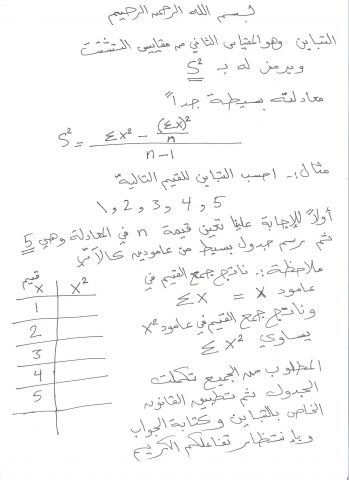 بسم الله الرحمن الرحيم
التباين وهو المقياس الثاني من مقاييس التشتت
ويرمز له بـ S²
معادلته بسيطة جداً
S² = (Σx² − (Σx)²/n) / (n−1)
مثال:- احسب التباين للقيم التالية
1, 2, 3, 4, 5
أولاً للإجابة علينا تعين قيمة n في المعادلة وهي 5
ثم رسم جدول بسيط من عامودين كالآتي
قيم x | x²
1
2
3
4
5
ملاحظة:- ناتج جمع القيم في
عامود x = Σx
وناتج جمع القيم في عامود x²
يساوي Σx²
المطلوب من الجميع تكملت
الجدول ثم تطبيق القانون
الخاص بالتباين وكتابة الجواب
وبإنتظار تفاعلكم الكريم